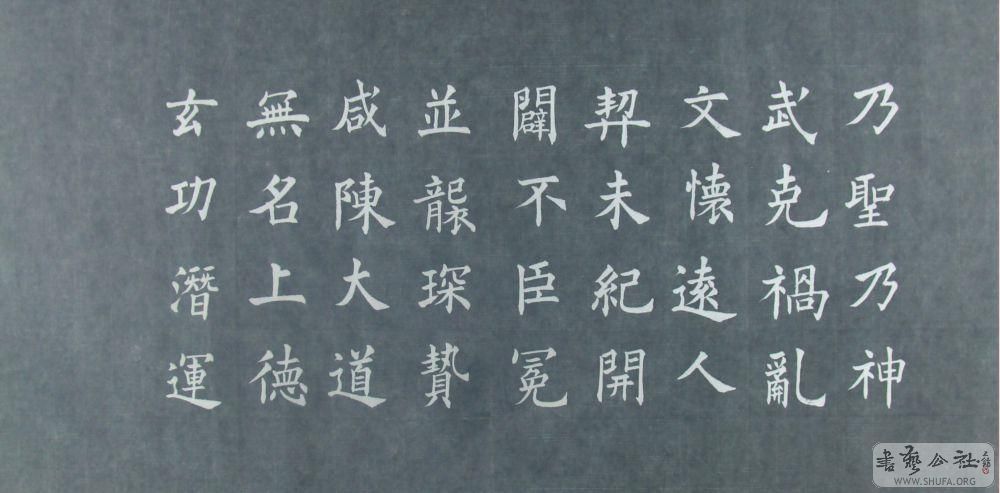 乃聖乃神
武克禍亂
文懷遠人
契未紀開
闢不臣冕
並襲琛贄
咸陳大道
無名上德
玄功潛運
書藝公社
WWW.SHUFA.ORG